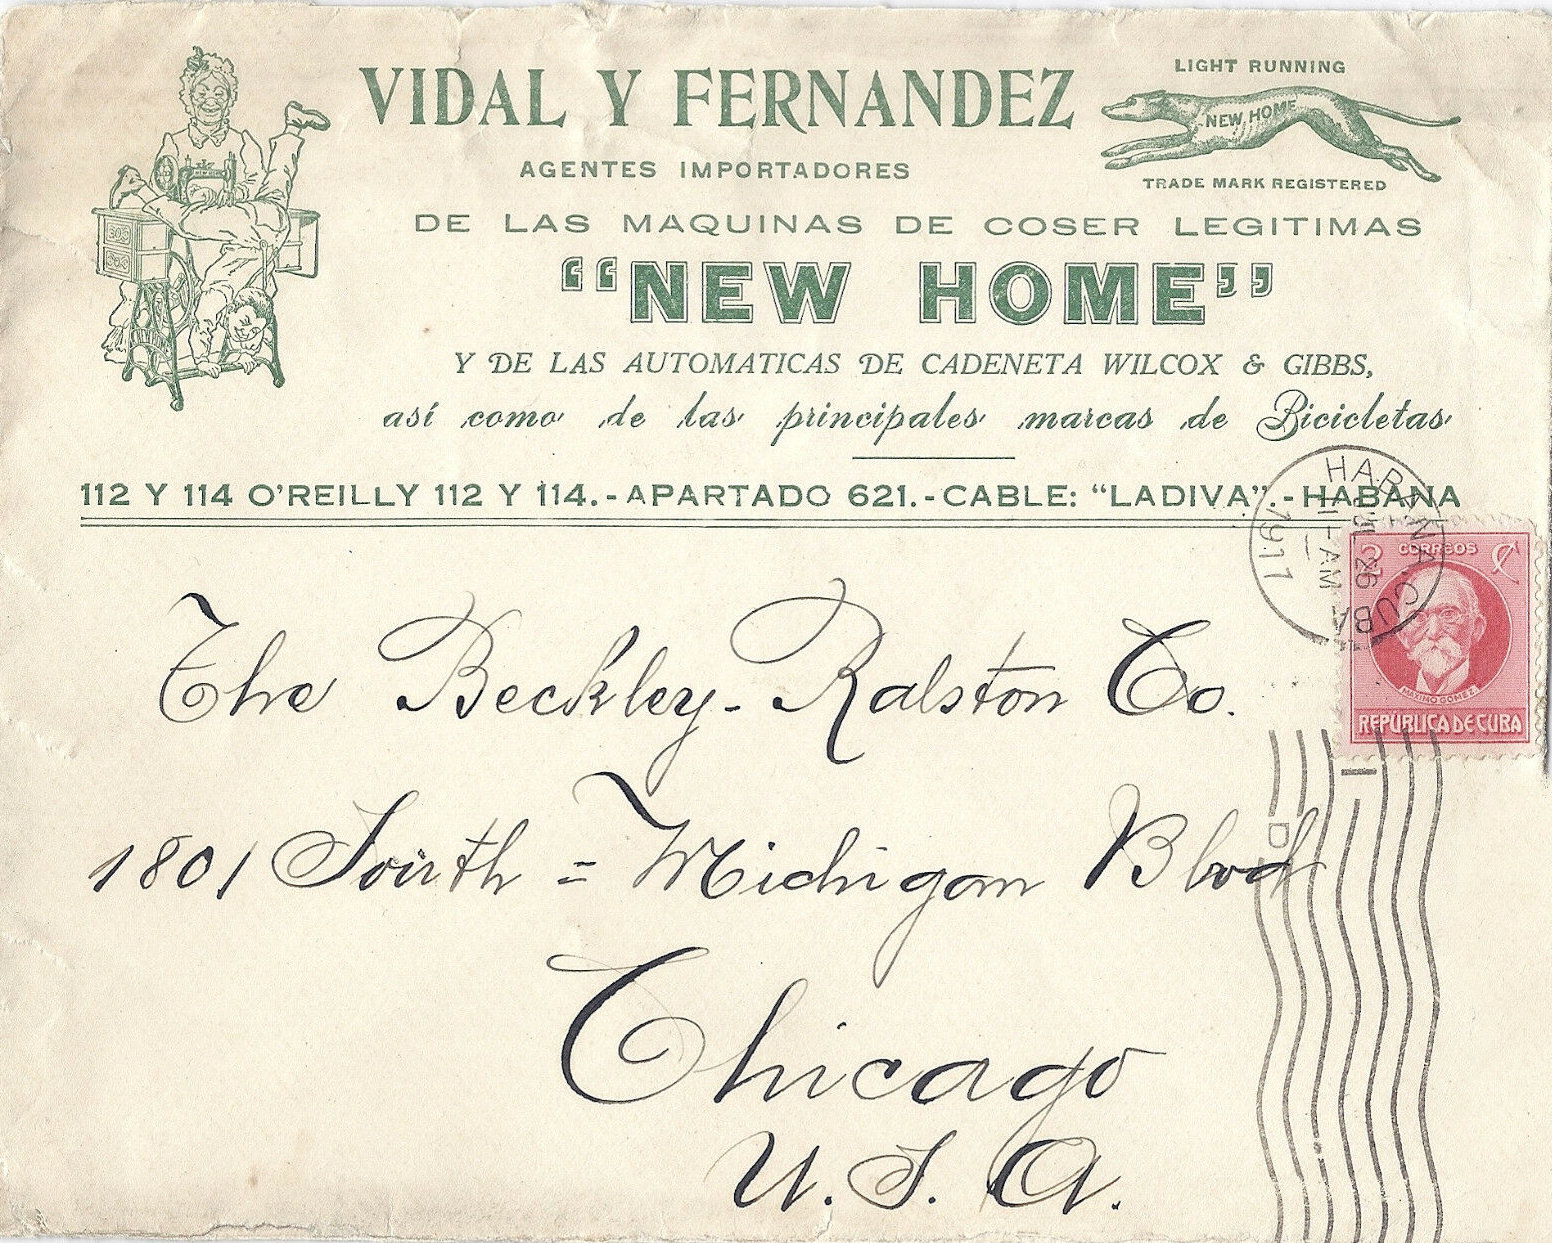 VIDAL Y FERNANDEZ
LIGHT RUNNING
NEW HOME
TRADE MARK REGISTERED
AGENTES IMPORTADORES
DE LAS MAQUINAS DE COSER LEGITIMAS
“NEW HOME”
Y DE LAS AUTOMATICAS DE CADENETA WILCOX & GIBBS,
así como de las principales marcas de Bicicletas
112 Y 114 O'REILLY 112 Y 114.-APARTADO 621.-CABLE: “LADIVA”.-HABANA
HABANA, CUBA
JUL 26
11-AM
1917
2 CORREOS C
MAXIMO GOMEZ
REPUBLICA DE CUBA
The Beckley-Ralston Co.
1801 South = Michigan Blvd
Chicago
U.S.A.